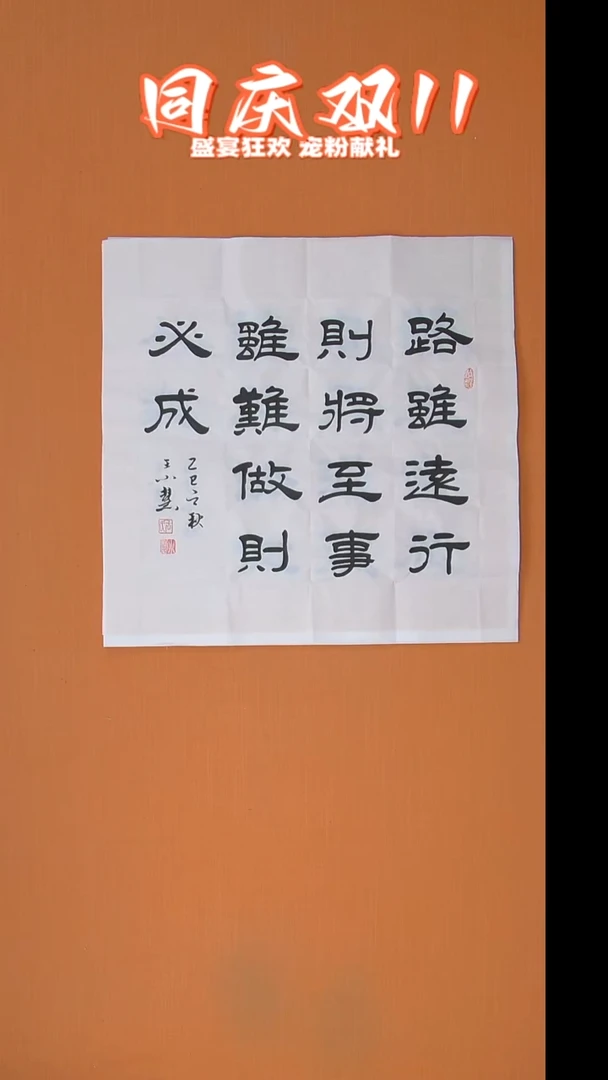 同庆双11
盛宴狂欢 宠粉献礼
路雖遠行
則將至事
雖難做則
必成
乙巳之秋
王小慧